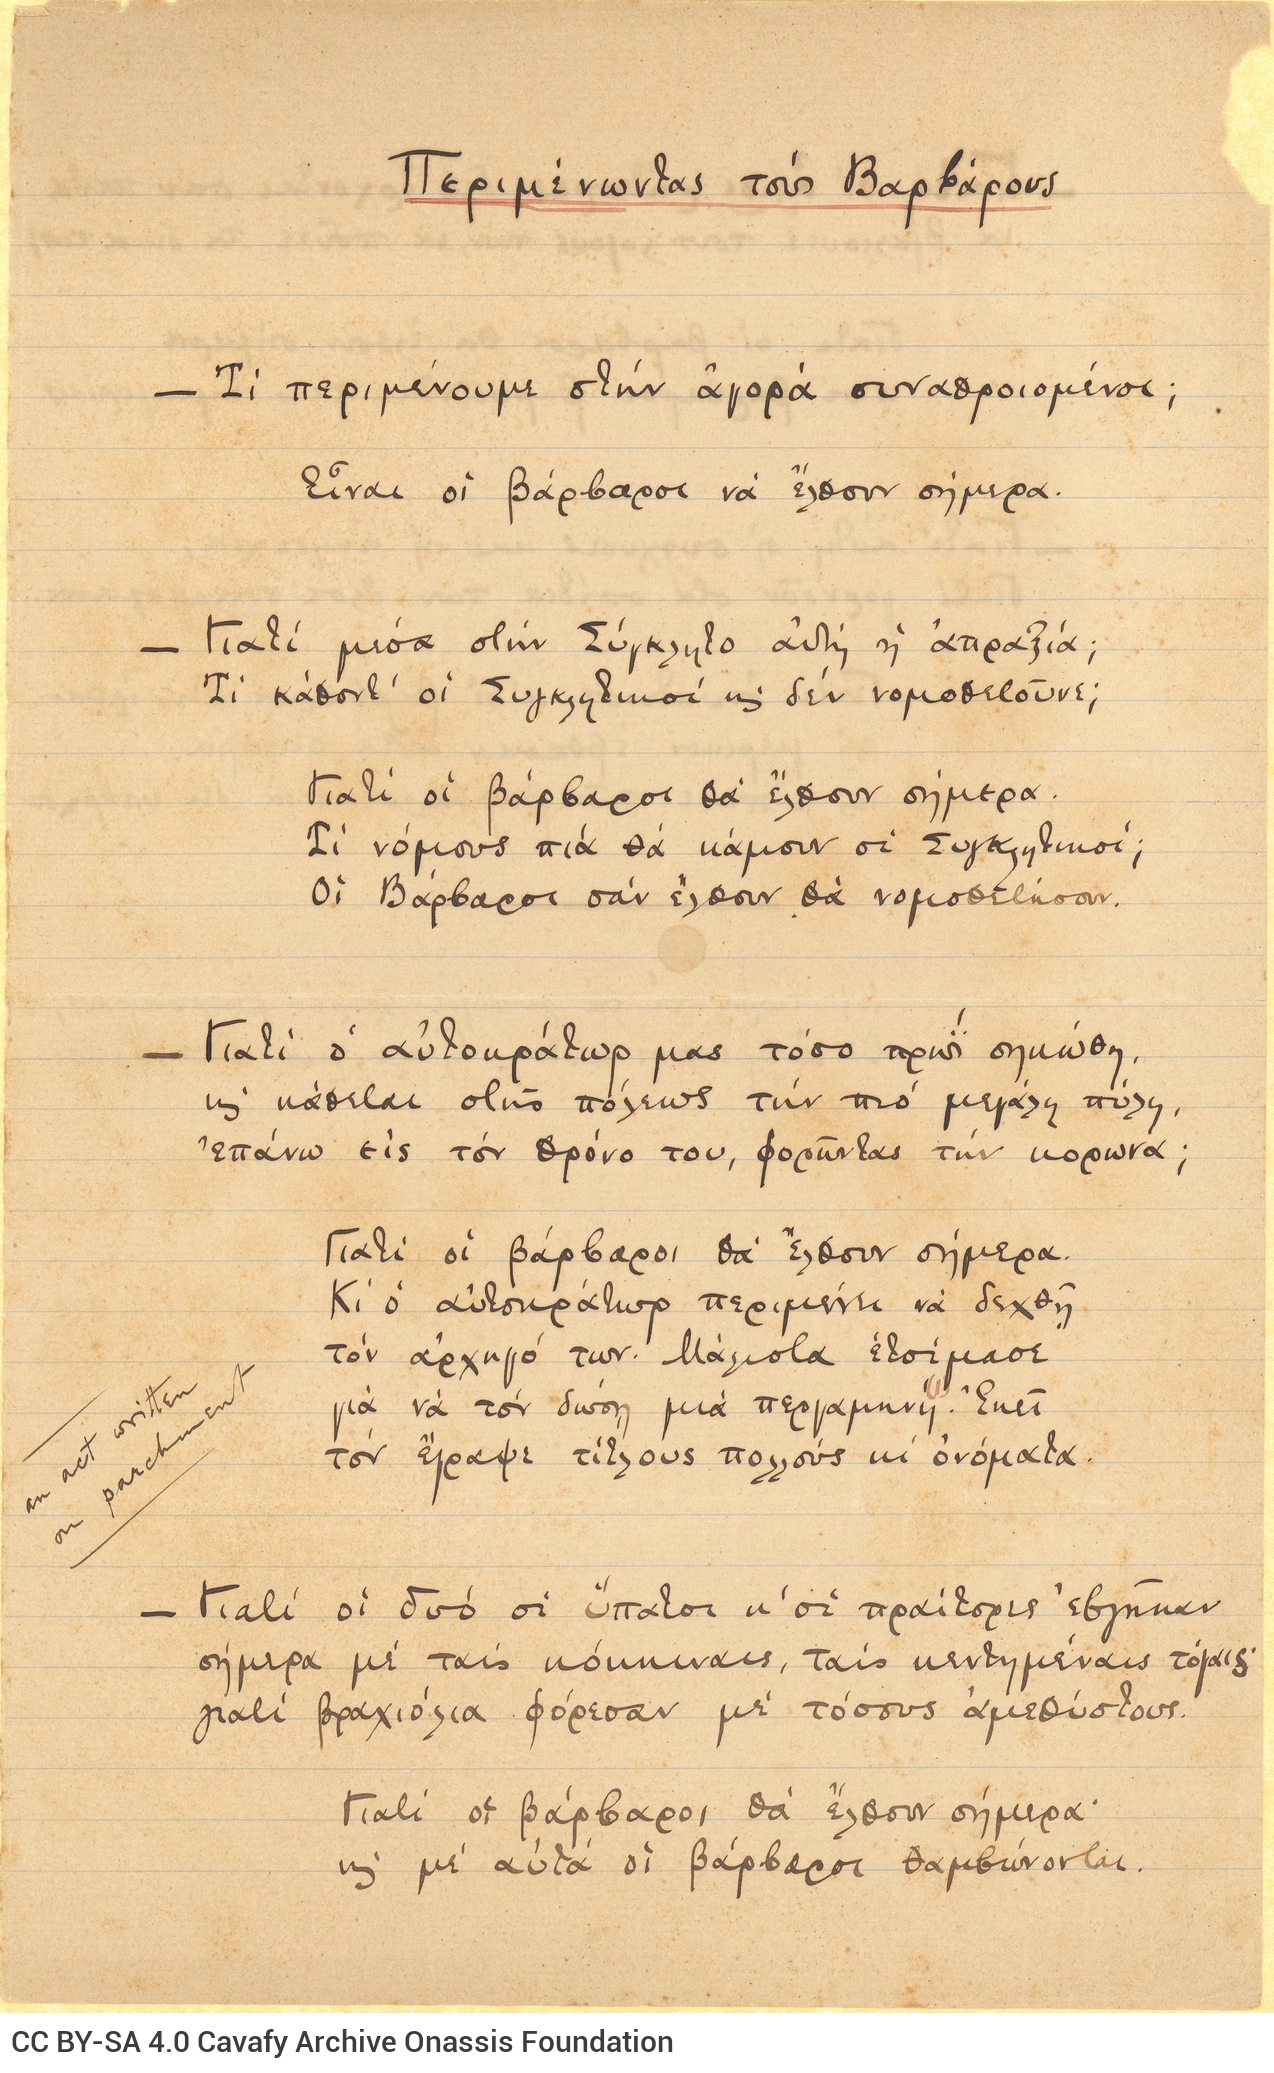 Περιμένωντας τούς Βαρβάρους
— Τί περιμένουμε στήν ἀγορά συναθροισμένοι;
Εἶναι οἱ βάρβαροι νά ἔλθουν σήμερα.
— Γιατί μέσα στήν Σύγκλητο αὐτή ἡ ἀπραξία;
Τί κάθοντ' οἱ Συγκλητικοί κϳ δέν νομοθετοῦνε;
Γιατί οἱ βάρβαροι θά ἔλθουν σήμερα.
Τί νόμους πιά θά κάμουν οἱ Συγκλητικοί;
Οἱ Βάρβαροι σάν ἔλθουν θά νομοθετήσουν.
— Γιατί ὁ αὐτοκράτωρ μας τόσο πρωΐ σηκώθη,
κϳ κάθεται στῆς πόλεως τήν πιό μεγάλη πύλη,
ἐπάνω εἰς τόν θρόνο του, φορῶντας τήν κορωνα;
Γιατί οἱ βάρβαροι θά ἔλθουν σήμερα.
Κι ὁ αὐτοκράτωρ περιμένει νά δεχθῇ
τόν ἀρχηγό των. Μάλιστα ἑτοίμασε
γιά νά τόν δώσῃ μιά περγαμηνή. Ἐκεῖ
τόν ἔγραψε τίτλους πολλούς κι ὀνόματα.
an act written
on parchment
— Γιατί οἱ δυό οἱ ὕπατοι κ' οἱ πραίτορες ἐβγῆκαν
σήμερα μέ ταίς κόκκιναις, ταίς κεντημέναις τόγαις·
γιατί βραχιόλια φόρεσαν μέ τόσους ἀμεθύστους.
Γιατί οἱ βάρβαροι θά ἔλθουν σήμερα·
κϳ μέ αὐτά οἱ βάρβαροι θαμβώνονται.
CC BY-SA 4.0 Cavafy Archive Onassis Foundation